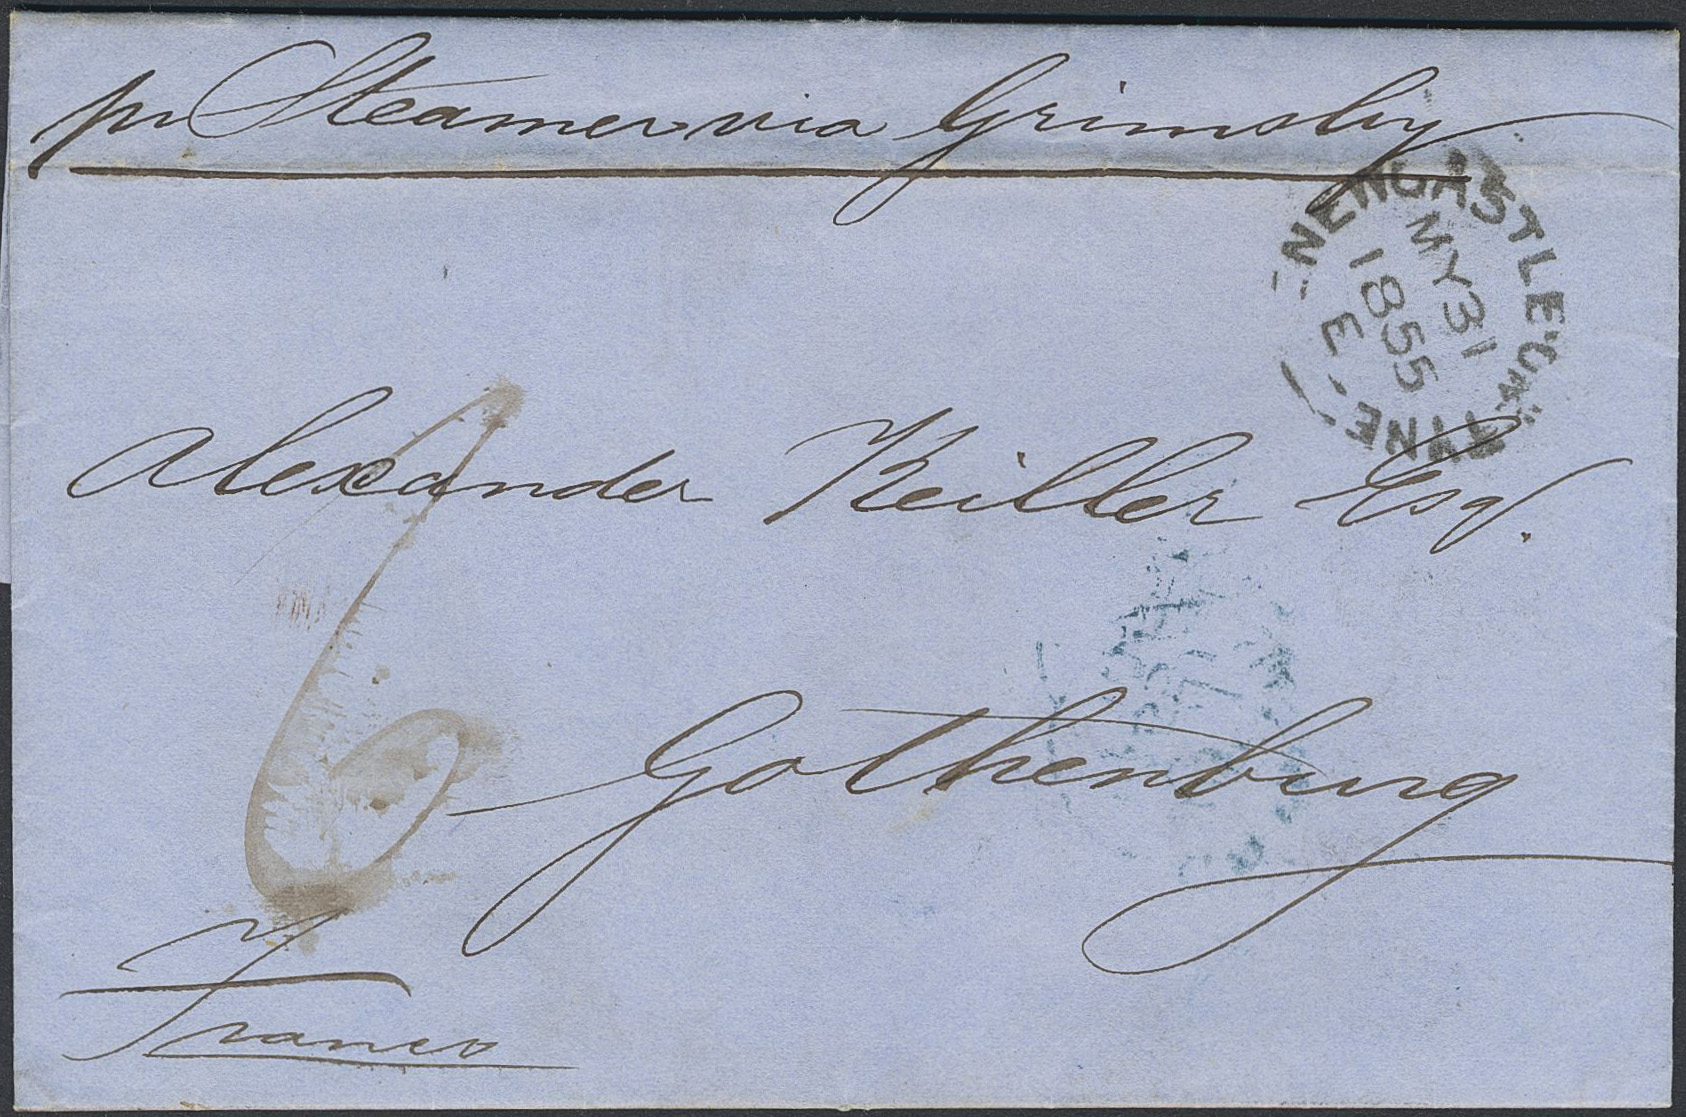 pr Steamer via Grimsby
NEWCASTLE
MY 31
1855
E
TYNE
Alexander Keiller Esqr.
6
Gothenburg
Franco